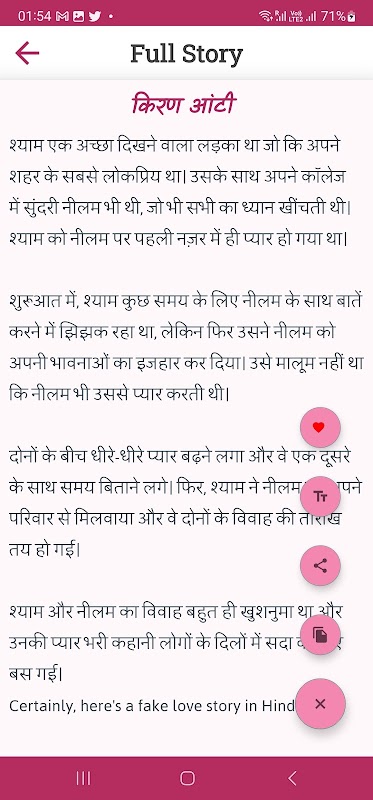 01:54 71%
Full Story
किरण आंटी
श्याम एक अच्छा दिखने वाला लड़का था जो कि अपने
शहर के सबसे लोकप्रिय था। उसके साथ अपने कॉलेज
में सुंदरी नीलम भी थी, जो भी सभी का ध्यान खींचती थी।
श्याम को नीलम पर पहली नज़र में ही प्यार हो गया था।
शुरूआत में, श्याम कुछ समय के लिए नीलम के साथ बातें
करने में झिझक रहा था, लेकिन फिर उसने नीलम को
अपनी भावनाओं का इजहार कर दिया। उसे मालूम नहीं था
कि नीलम भी उससे प्यार करती थी।
दोनों के बीच धीरे-धीरे प्यार बढ़ने लगा और वे एक दूसरे
के साथ समय बिताने लगे। फिर, श्याम ने नीलम
परिवार से मिलवाया और वे दोनों के विवाह की तारीख
तय हो गई।
श्याम और नीलम का विवाह बहुत ही खुशनुमा था और
उनकी प्यार भरी कहानी लोगों के दिलों में सदा
बस गई।
Certainly, here's a fake love story in